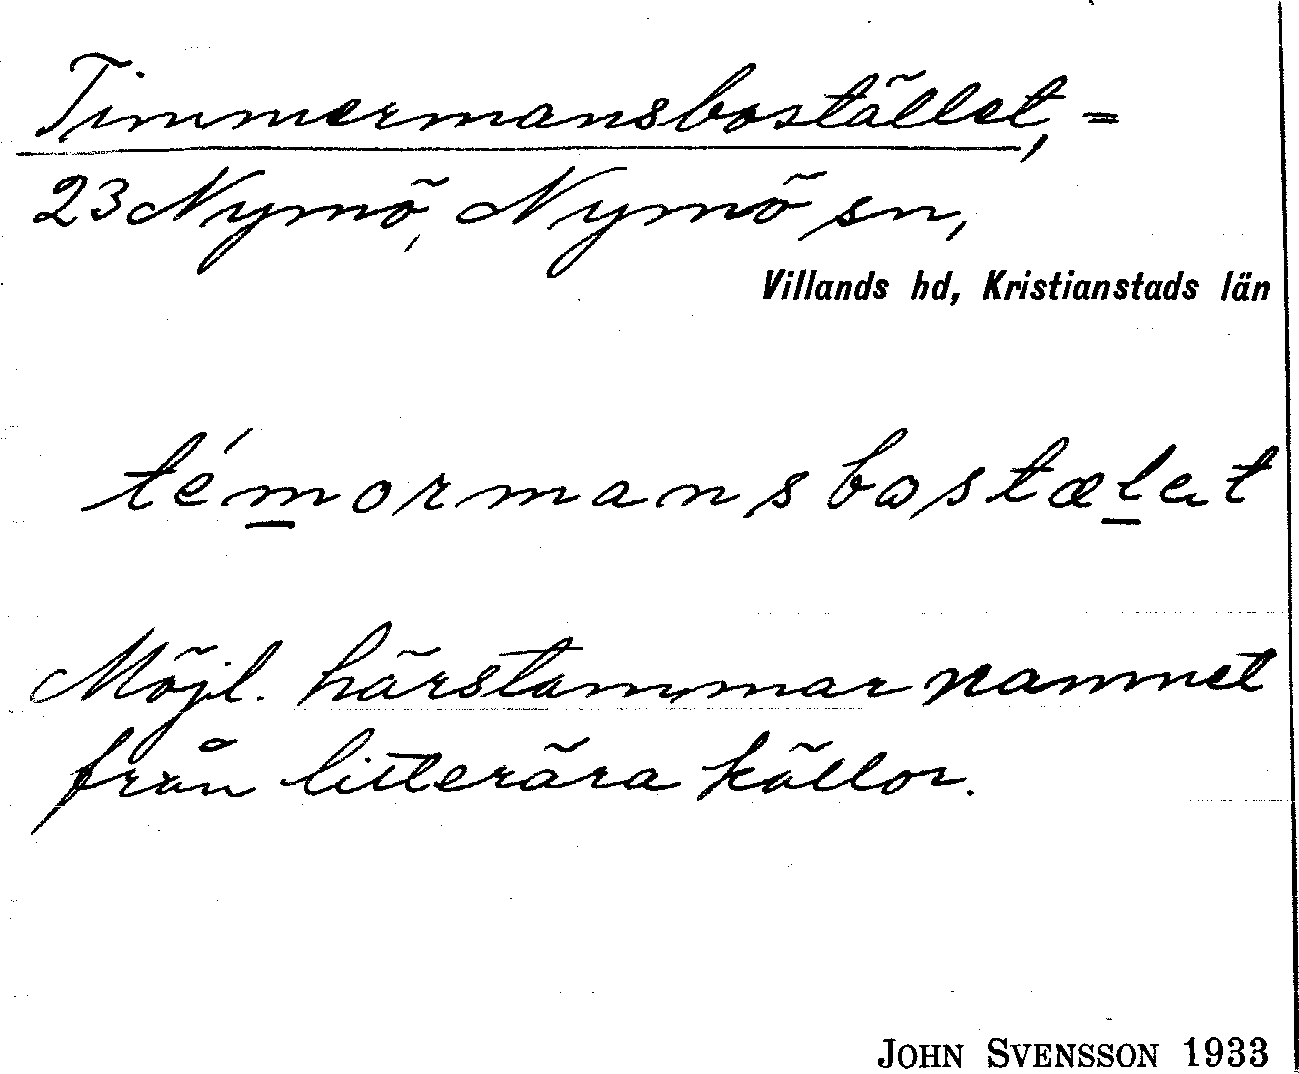 Timmermansbostället, =
23 Nymö, Nymö sn,
Villands hd, Kristianstads län
témormansbostælet
Möjl. härstammar namnet
från litterära källor.
JOHN SVENSSON 1933